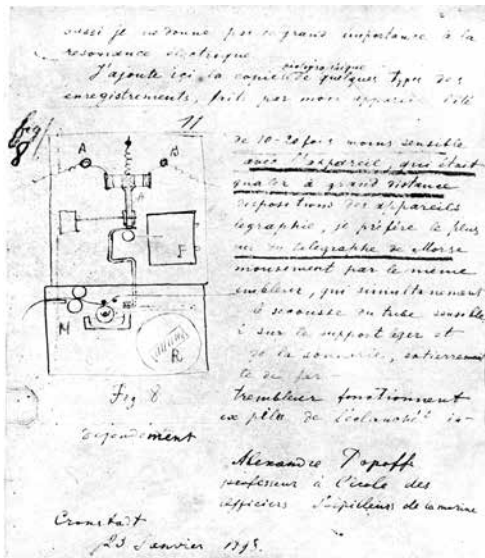 aussi je ne donne pas grand importance à la
resonnance electrique
J'ajoute ici la copie de quelques types des
photographique
enregistrements, faits par mon appareil l'été
fig
8
11
A
B
F
M
R
de 10-20 fois moins sensible
avec l'appareil, qui était
à grand distance
dispositions des appareils
legraphie, je préfère le plus
du telegraphe de Morse
mouvement par le même
trembleur, qui simultanement
secousse du tube sensible
sur le support et
de la sonnerie, entierement
de fer
Fig 8
trembleur fonctionnent
piles de l'in-
dependement
Alexandre Popoff
professeur à l'école des
officiers torpilleurs de la marine
Cronstadt
Janvier